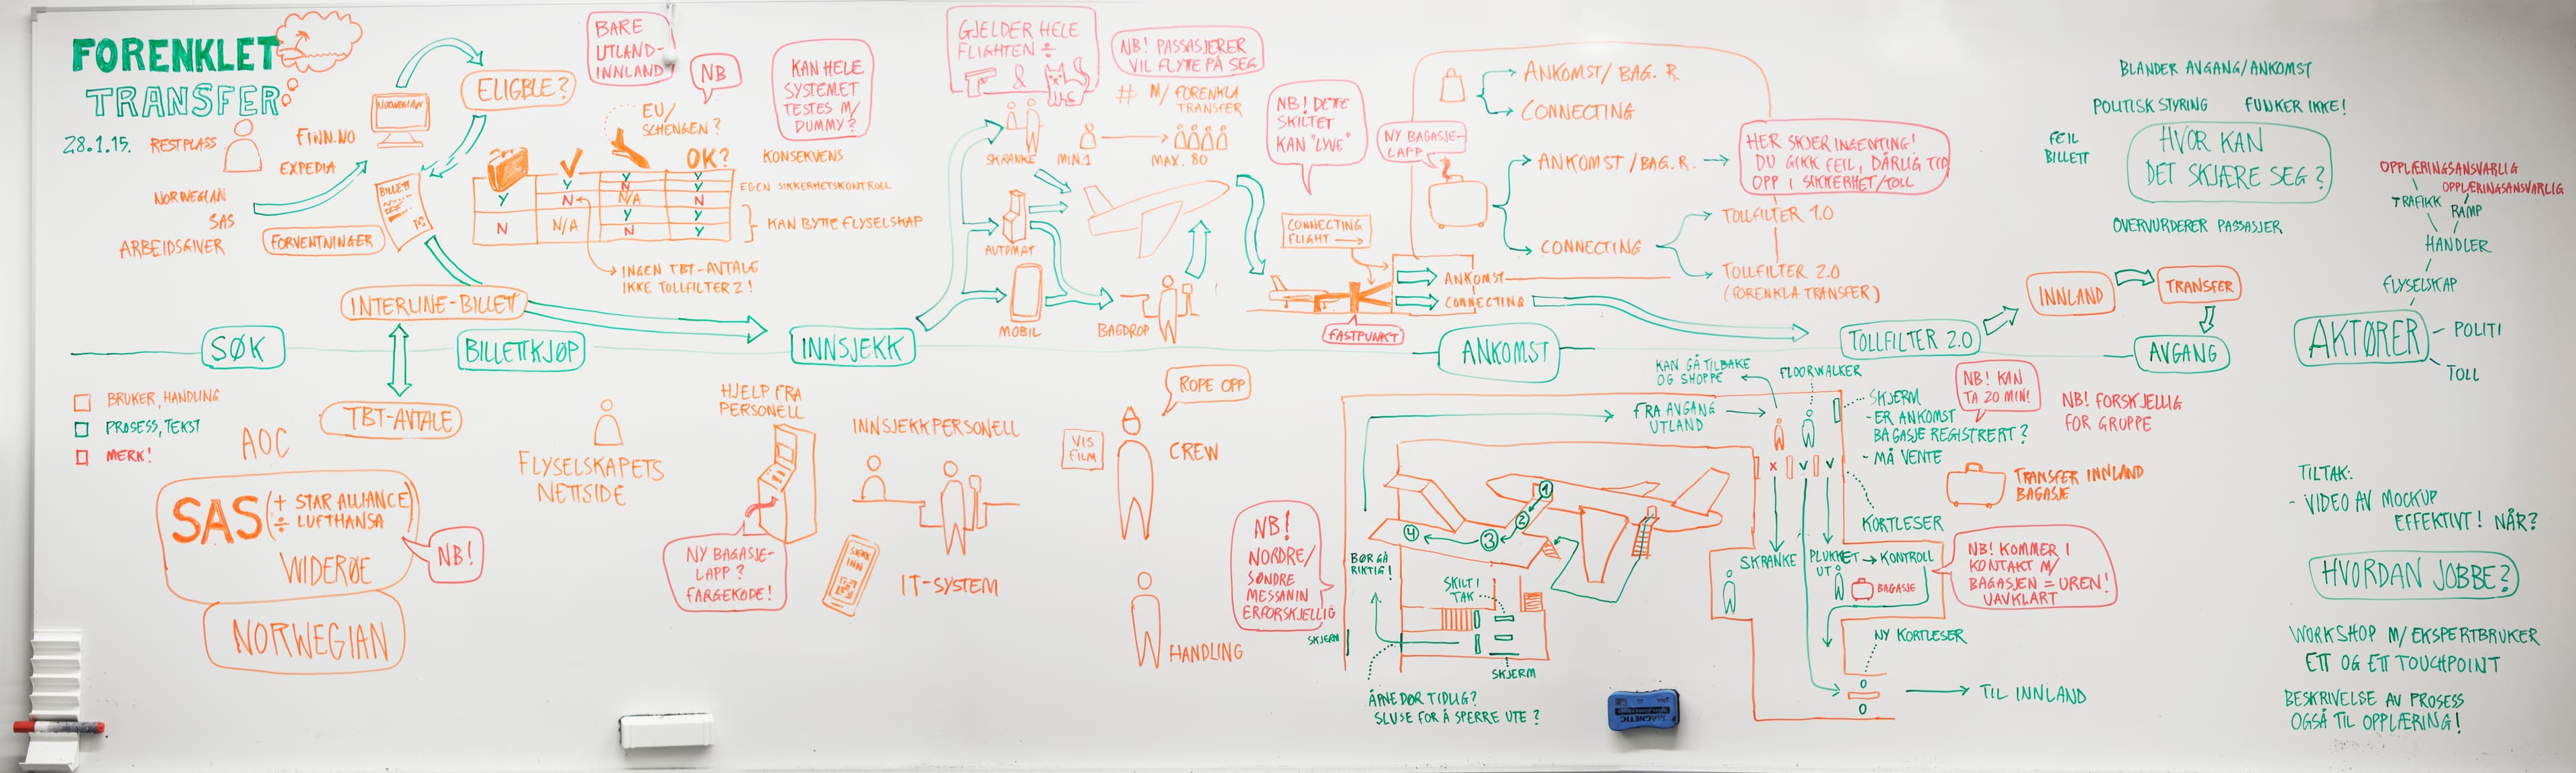 FORENKLET
TRANSFER
28.1.15.
RESTPLASS
FINN.NO
EXPEDIA
NORWEGIAN
SAS
ARBEIDSGIVER
FORVENTNINGER
NORWEGIAN
BILLETT
ELIGBLE?
BARE
UTLAND-
INNLAND
NB
EU/
SCHENGEN?
OK?
Y
Y
N
Y
N
N/A
Y
N
Y
Y
N
N
N/A
Y
N
Y
Y
KONSEKVENS
EGEN SIKKERHETSKONTROLL
KAN BYTTE FLYSELSKAP
INGEN TBT-AVTALE
IKKE TOLLFILTER 2!
KAN HELE
SYSTEMET
TESTES M/
DUMMY?
INTERLINE-BILLETT
SØK
BILLETTKJØP
INNSJEKK
ANKOMST
TOLLFILTER 2.0
AVGANG
GJELDER HELE
FLIGHTEN ÷
&
NB! PASSASJERER
VIL FLYTTE PÅ SEG
# M/ FORENKLA
TRANSFER
SKRANKE
MIN.1
MAX. 80
AUTOMAT
MOBIL
BAGDROP
NB! DETTE
SKILTET
KAN "LYVE"
CONNECTING
FLIGHT
FASTPUNKT
ANKOMST
CONNECTING
ANKOMST/BAG. R.
CONNECTING
NY BAGASJE-
LAPP
ANKOMST/BAG.R.
CONNECTING
HER SKJER INGENTING!
DU GIKK FEIL, DÅRLIG TID
OPP I SIKKERHET/TOLL
TOLLFILTER 1.0
TOLLFILTER 2.0
(FORENKLA TRANSFER)
INNLAND
TRANSFER
BLANDER AVGANG/ANKOMST
POLITISK STYRING
FUNKER IKKE!
FEIL
BILLETT
HVOR KAN
DET SKJÆRE SEG?
OVERVURDERER PASSASJER
OPPLÆRINGSANSVARLIG
OPPLÆRINGSANSVARLIG
TRAFIKK
RAMP
HANDLER
FLYSELSKAP
AKTØRER
POLITI
TOLL
BRUKER, HANDLING
PROSESS, TEKST
MERK!
TBT-AVTALE
AOC
SAS (+ STAR ALLIANCE)
÷ LUFTHANSA
WIDERØE
NB!
NORWEGIAN
FLYSELSKAPETS
NETTSIDE
HJELP FRA
PERSONELL
NY BAGASJE-
LAPP?
FARGEKODE!
INNSJEKKPERSONELL
SJEKK
INN
IT-SYSTEM
ROPE OPP
VIS
FILM
CREW
HANDLING
NB!
NORDRE/
SØNDRE
MESSANIN
ER FORSKJELLIG
SKJERM
BØR GÅ
RIKTIG!
FRA AVGANG
UTLAND
1
2
3
4
SKILT I
TAK
SKJERM
ÅPNE DØR TIDLIG?
SLUSE FOR Å SPERRE UTE?
KAN GÅ TILBAKE
OG SHOPPE
FLOORWALKER
SKJERM
- ER ANKOMST
BAGASJE REGISTRERT?
- MÅ VENTE
NB! KAN
TA 20 MIN!
NB! FORSKJELLIG
FOR GRUPPE
TRANSFER INNLAND
BAGASJE
KORTLESER
SKRANKE
PLUKKET
UT
KONTROLL
BAGASJE
NB! KOMMER I
KONTAKT M/
BAGASJEN = UREN!
UAVKLART
NY KORTLESER
TIL INNLAND
TILTAK:
- VIDEO AV MOCKUP
EFFEKTIVT! NÅR?
HVORDAN JOBBE?
WORKSHOP M/ EKSPERTBRUKER
ETT OG ETT TOUCHPOINT
BESKRIVELSE AV PROSESS
OGSÅ TIL OPPLÆRING!
MAGNETIC